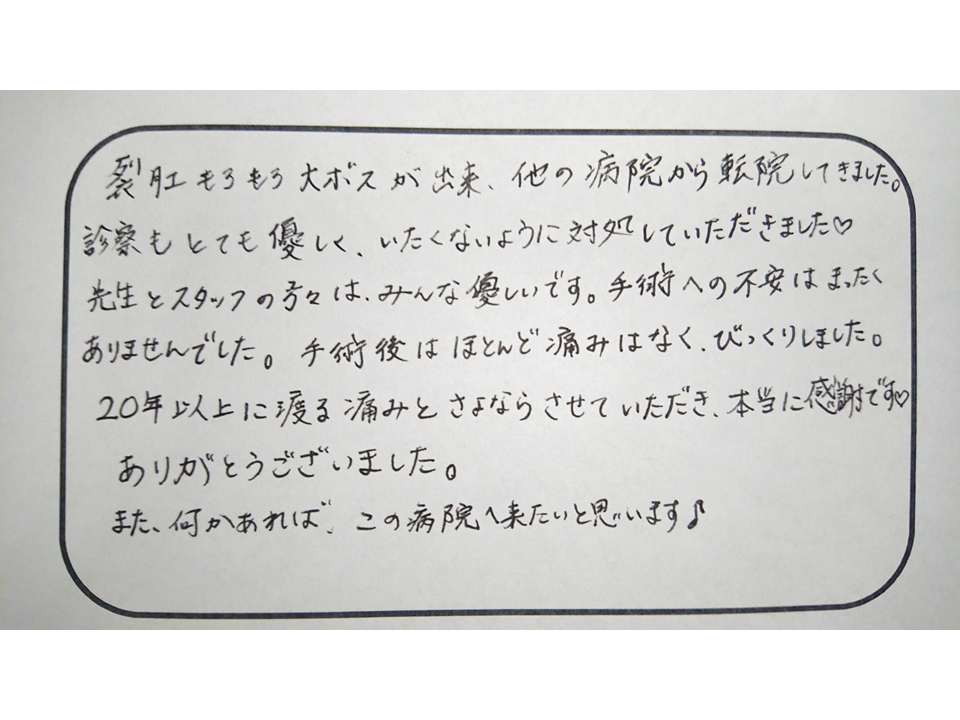 裂肛もろもろ大ボスが出来、他の病院から転院してきました。
診察もとても優しく、いたくないように対処していただきました♡
先生とスタッフの方々は、みんな優しいです。手術への不安はまったく
ありませんでした。手術後はほとんど痛みはなく、びっくりしました。
20年以上に渡る痛みとさよならさせていただき、本当に感謝です♡
ありがとうございました。
また、何かあれば、この病院へ来たいと思います♪